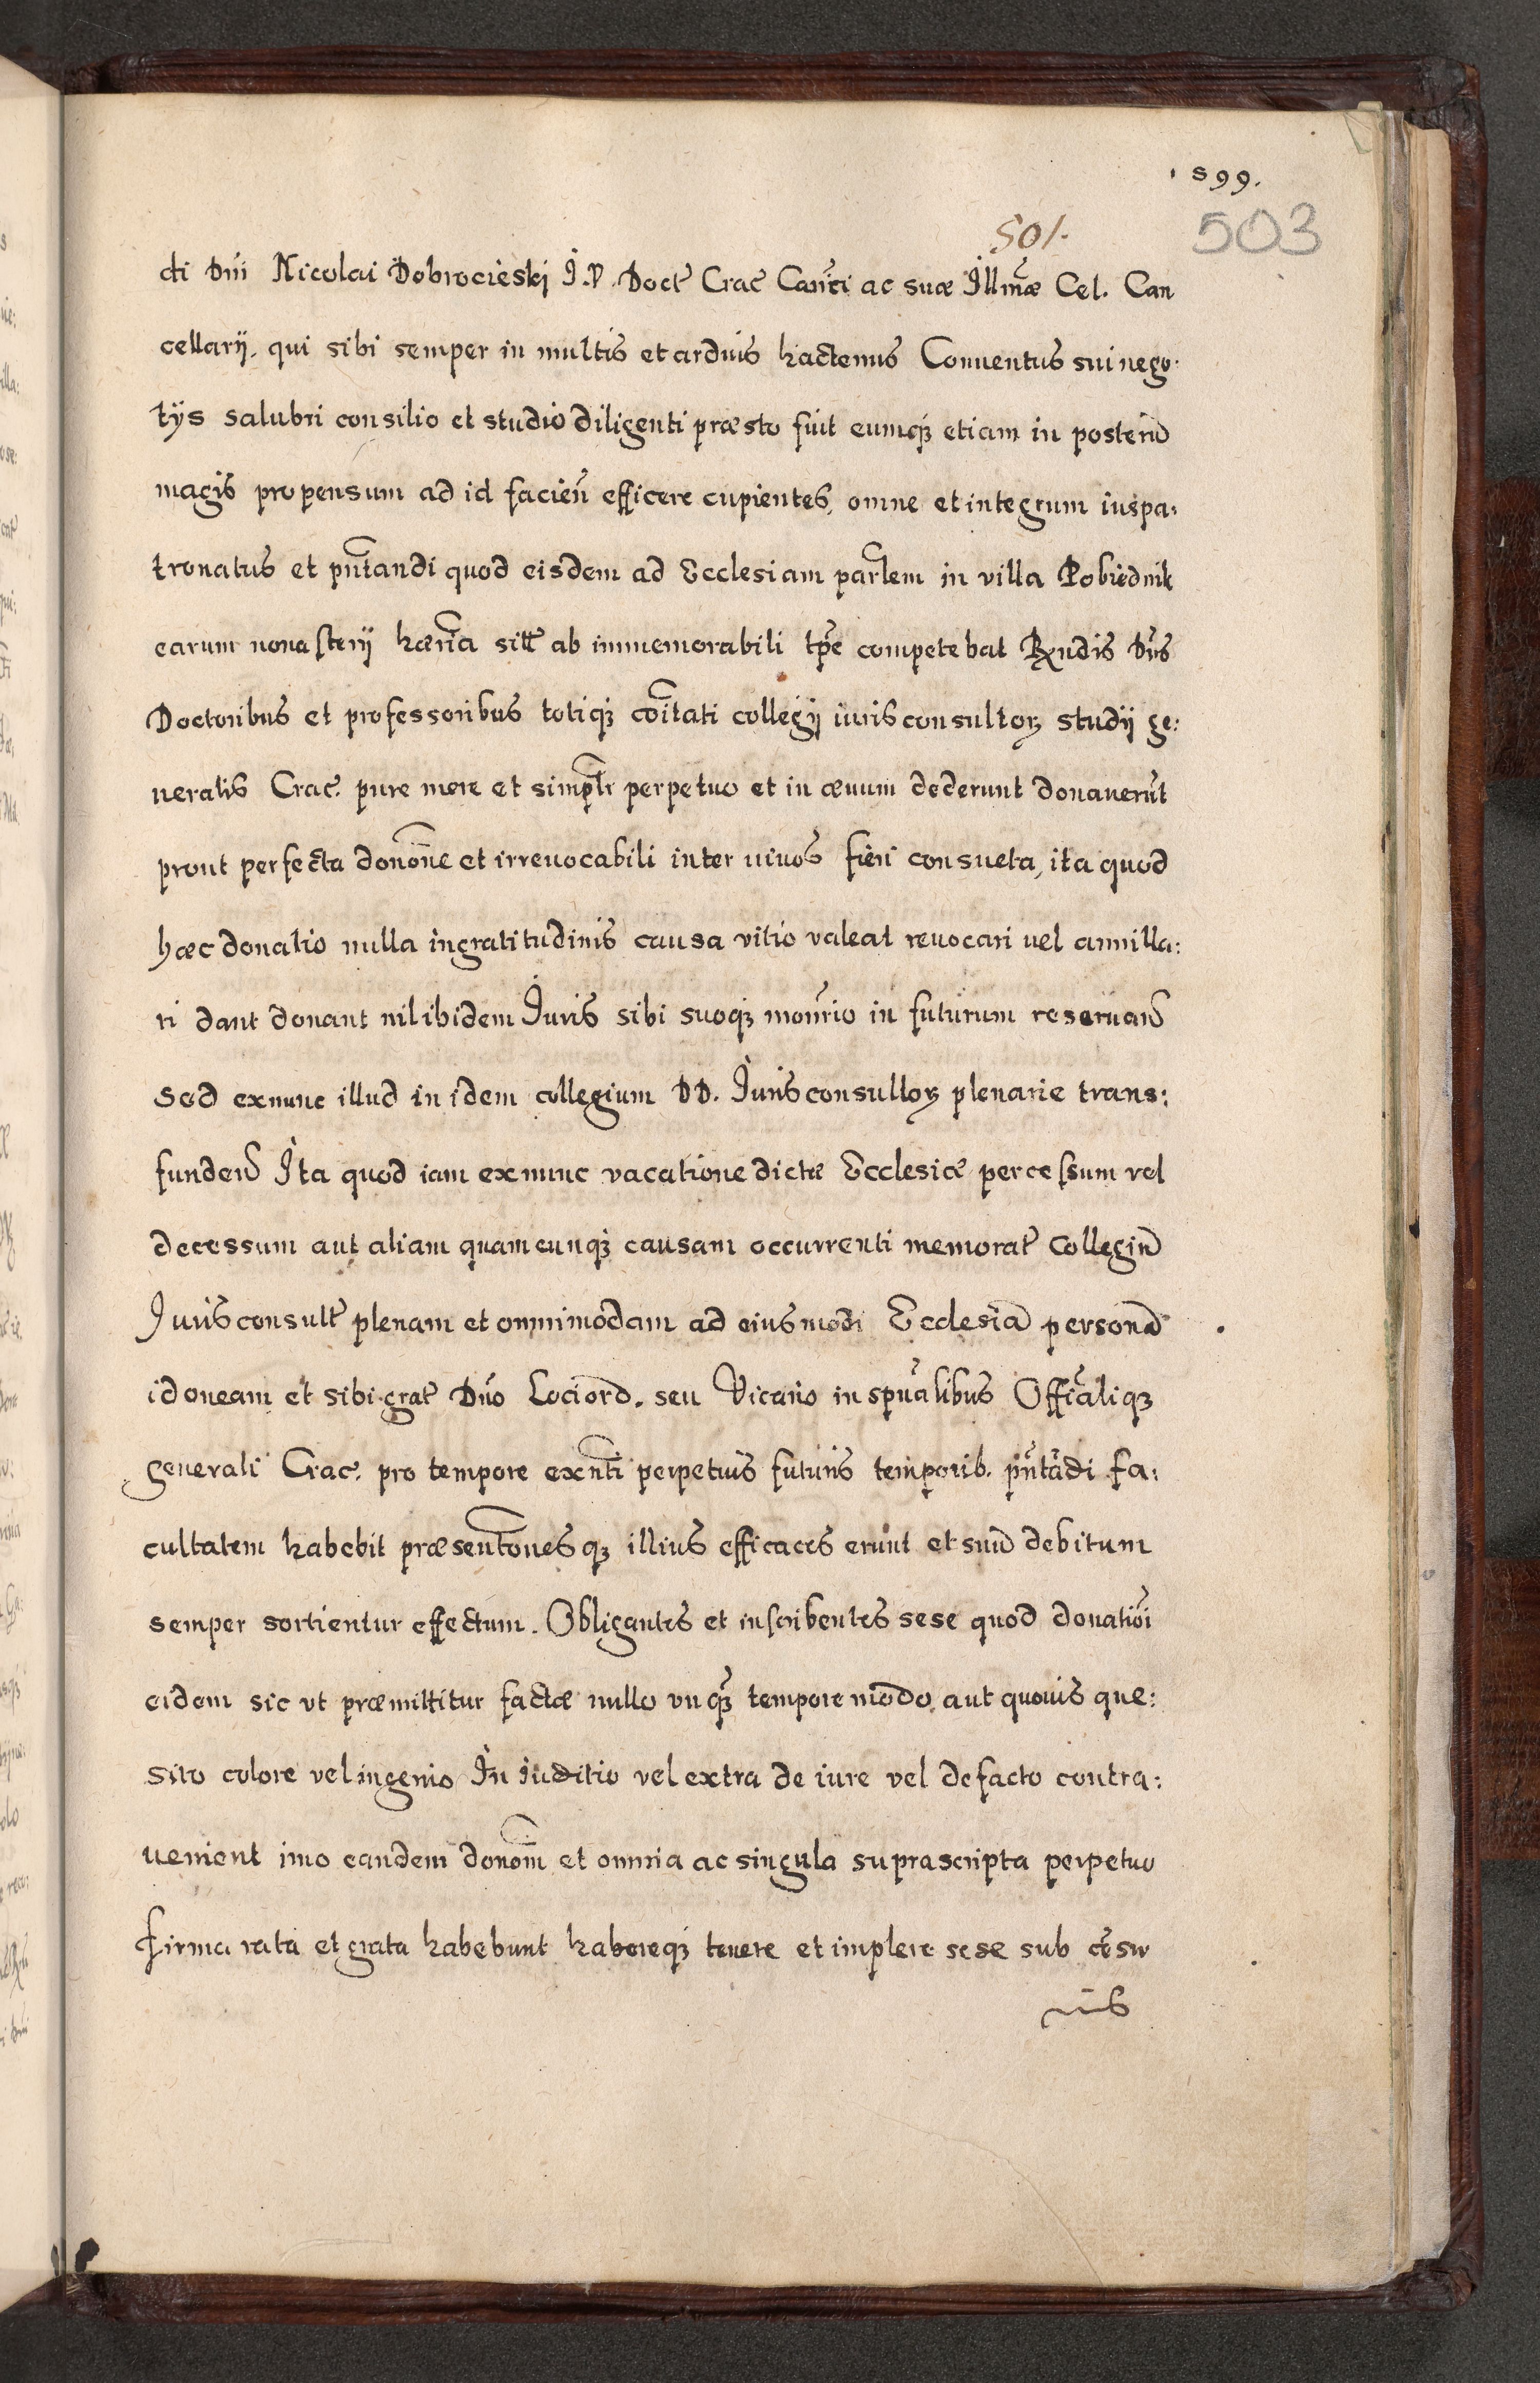 1599.
501.
503
cti Dni Nicolai Dobrocieski J. V. Doct Crac Canci ac suæ Illmæ Cel. Can
cellarij, qui sibi semper in multis et arduis hactenus Conuentus sui nego:
tijs salubri consilio et studio diligenti præsto fuit eumq; etiam in posterũ
magis propensum ad id facien̄ efficere cupientes, omne et integrum iuspa:
tronatus et pñtandi quod eisdem ad Ecclesiam parlem in villa Pobiednik
earum monasterij hæria sitt ab immemorabili tp̃e competebat Rndis Dnis
Doctoribus et professoribus totiq; cõitati collegij iurisconsultoꝝ studij ge:
neralis Crac. pure mere et simplr perpetuo et in æuum dederunt donauerũt
prout perfecta donõne et irreuocabili inter uiuos fieri consueta, ita quod
hæc donatio nulla ingratitudinis causa vitio valeat reuocari vel annilla:
ri dant donant nil ibidem Juris sibi suoq; monrio in futurum reseruan̄
sed exnunc illud in idem collegium DD. Jurisconsultoꝝ plenarie trans:
funden̄ Ita quod iam ex nunc vacatione dictæ Ecclesiæ per cessum vel
decessum aut aliam quamcunq; causam occurrenti memorat Collegiũ
Jurisconsult plenam et omnimodam ad eiusmodi Ecclesiã personã
idoneam et sibi grat Dño Lociord. seu Vicario in spũalibus Officialiq;
generali Crac. pro tempore exnti perpetuis futuris temporib. pñtãdi fa:
cultatem habebit præsentõnesq; illius efficaces erunt et suũ debitum
semper sortientur effectum. Obligantes et inscribentes sese quod donatiõi
eidem sic vt præmittitur factæ nullo vnq̃ tempore modo aut quouis que:
sito colore vel ingenio In iuditio vel extra de iure vel de facto contra:
uenient imo eandem donõm et omnia ac singula suprascripta perpetuo
firma rata et grata habebunt habereq; tenere et implere sese sub cẽsu
ris